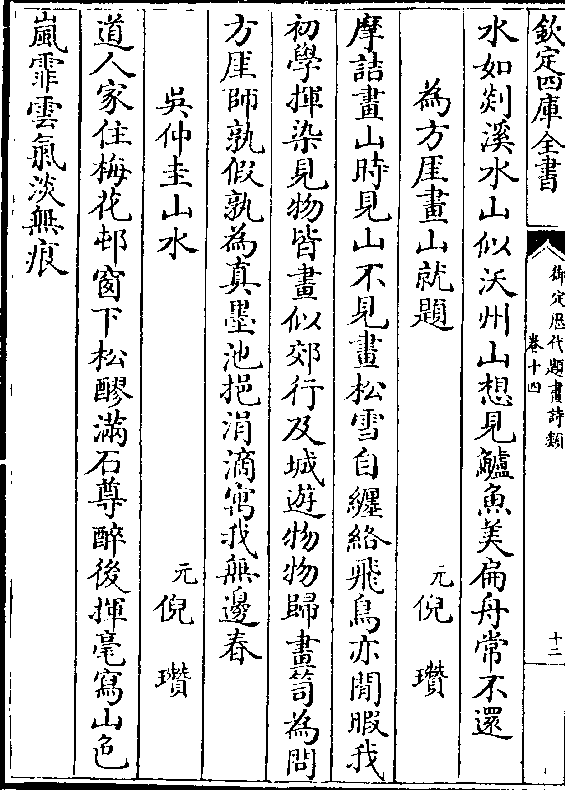 欽定四庫全書
御定歷代題畫詩類
卷十四
十二
水如剡溪水山似沃州山想見鱸魚美扁舟常不還
為方厓畫山就題
元倪瓚
摩詰畫山時見山不見畫松雪自纏絡飛鳥亦閒暇我
初學揮染見物皆畫似郊行及城遊物物歸畫笥為問
方厓師孰假孰為真墨池挹涓滴寓我無邊春
吳仲圭山水
元倪瓚
道人家住梅花邨窗下松醪滿石尊醉後揮毫寫山色
嵐霏雲氣淡無痕